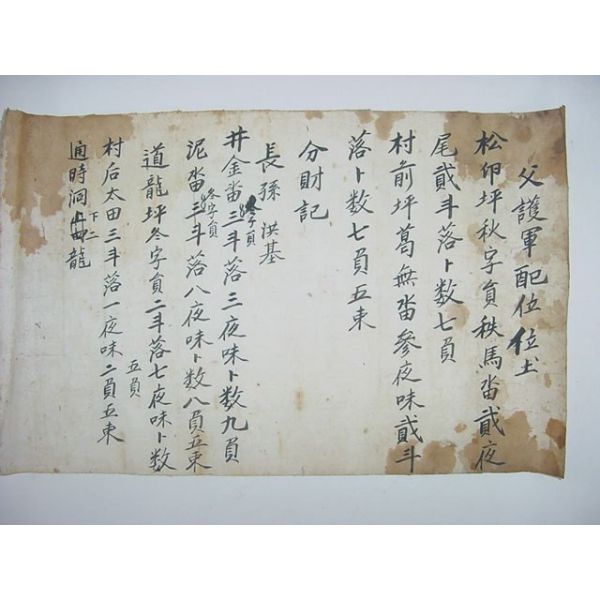 父護軍配位位土
松仰坪秋字負秩馬畓貳夜
尾貳斗落卜数七負
村前坪葛無畓參夜味貳斗
落卜数七負五束
分財記
長孫 洪基
井金畓冬字負三斗落三夜味卜数九負
泥畓冬字負三斗落八夜味卜数八負五束
道龍坪冬字負二斗落七夜味卜数五負
村后太田三斗落一夜味二負五束
通時洞 下二龍